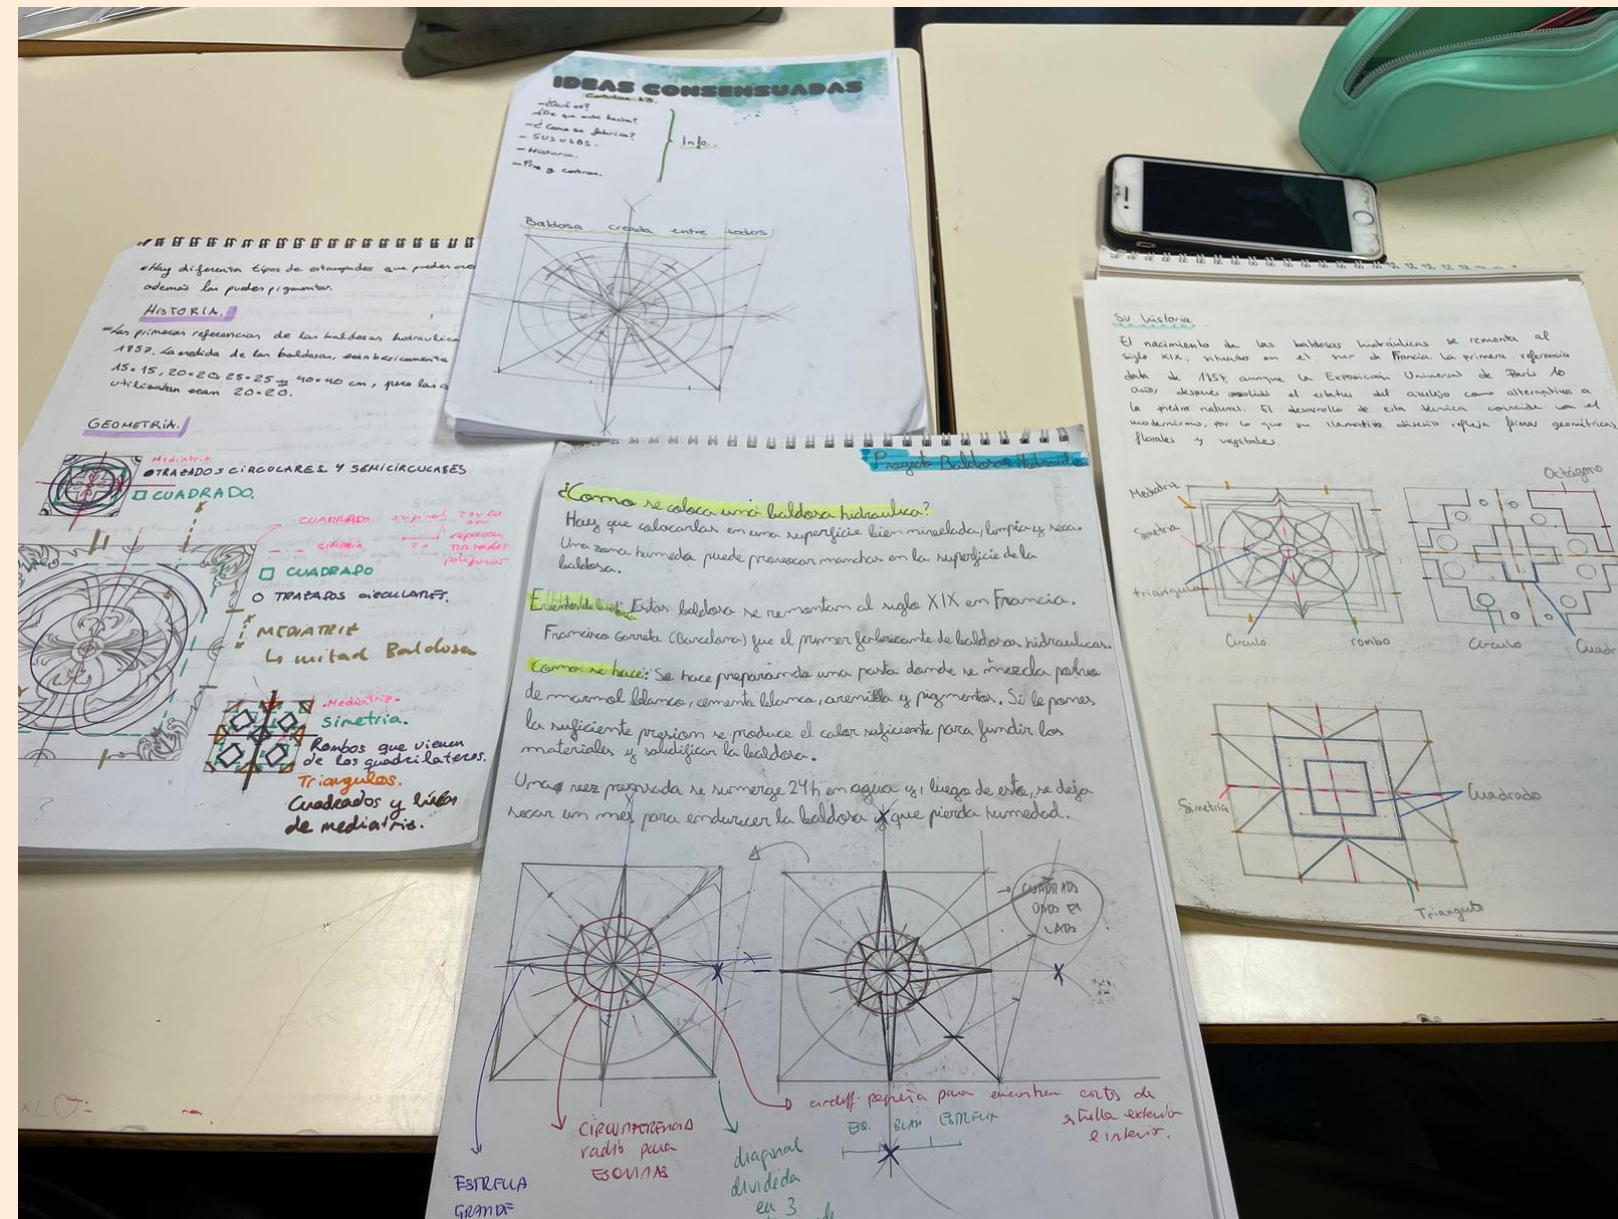 IDEAS CONSENSUADAS
- ¿Qué es?
- ¿De que esta hecha?
- ¿Como se fabrica?
- SUS USOS.
- Historia.
- Pros y contras.
Info.
Baldosa creada entre todos
• Hay diferentes tipos de estampados que puedes
además las puedes pigmentar.
HISTORIA.
Las primeras referencias de las baldosas hidráulica
1857. La medida de las baldosas, eran basicamente
15×15, 20×20, 25×25 y 40×40 cm, pero las
utilizaban eran 20×20.
GEOMETRÍA.
Mediatriz
TRAZADOS CIRCULARES Y SEMICIRCULARES
CUADRADO.
CUADRADO
SIMETRIA
CUADRADO
TRAZADOS CIRCULARES.
MEDIATRIZ
↳ mitad Baldosa
Mediatriz.
simetria.
Rombos que vienen
de los quadrilateros.
Triangulos.
Cuadrados y líneas
de mediatriz.
Proyecto Baldosas Hidraulicas
¿Como se coloca una baldosa hidraulica?
Hay que colocarlas en una superficie bien minelada, limpia y seca.
Una zona humeda puede provocar manchas en la superficie de la
baldosa.
Estas baldosa se remontan al siglo XIX en Francia.
Francisco Garreta (Barcelona) fue el primer fabricante de baldosas hidraulicas.
Como se hace: Se hace preparando una pasta donde se mezcla polvo
de marmol blanco, cemento blanco, arenilla y pigmentos. Si le pones
la suficiente presion se produce el calor suficiente para fundir los
materiales y solidificar la baldosa.
Una vez prensada se sumerge 24h en agua y, luego de esto, se deja
secar un mes para endurecer la baldosa y que pierda humedad.
CUADRADOS
LADOS
ESTRELLA
GRANDE
CIRCUNFERENCIA
radio para
ESQUINAS
diagonal
dividida
en 3
pequeña para encontrar cortes de
estrella exterior
e interior.
ESTRELLA
Su historia
El nacimiento de las baldosas hidráulicas se remonta al
siglo XIX, situado en el sur de Francia. La primera referencia
data de 1857, aunque la Exposición Universal de París 10
años después consolidó el estatus del azulejo como alternativa a
la piedra natural. El desarrollo de esta técnica coincide con el
modernismo, por lo que su llamativo diseño refleja formas geométricas,
florales y vegetales.
Mediatriz
Simetría
triangulo
Círculo
rombo
Octágono
Círculo
Cuadr
Simetría
Cuadrado
Triangulo